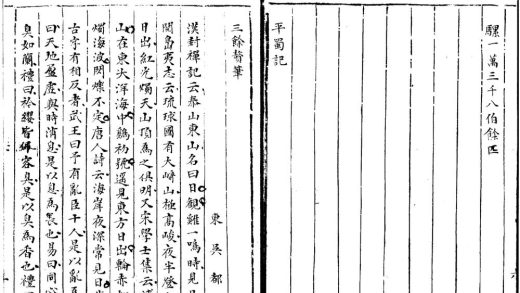 騾一萬三千八伯餘匹
平蜀記
三餘贅筆
東吳都
漢封禪記云泰山東山名曰日觀雞一鳴時見日
閩島夷志云琉球國有大崎山極高峻夜半登
日出紅光燭天山頂為之俱明又宋學士集云
山在東大洋海中鷄初號遥見東方日出輪赤
燭海波閃爍不定唐人詩云海岸夜深常見日
古字有相反者武王曰予有亂臣十人是以亂
曰天地盈虛與時消息是以息為長也易曰同心
臭如蘭禮曰衿纓皆佩容臭是以臭為香也禮